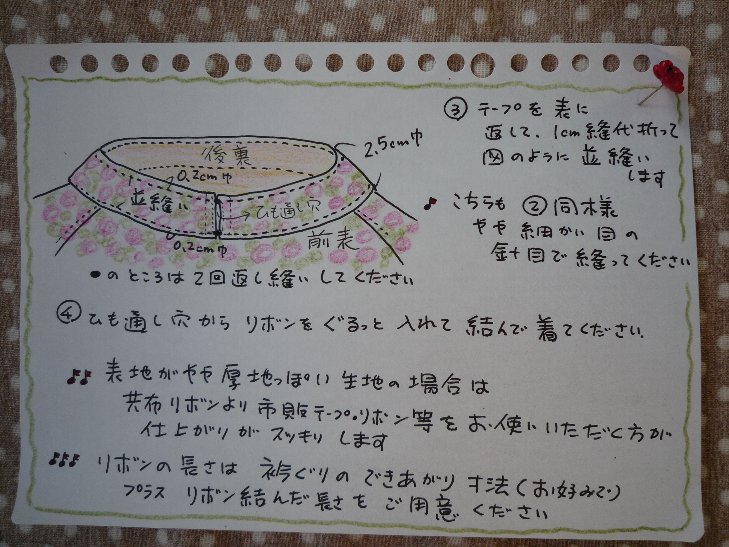 ③ テープを表に
返して、1cm縫代折って
図のように並縫い
します
♪ こちらも ② 同様
やや細かい目の
針目で縫ってください
後裏
2.5cm巾
0.2cm巾
並縫い
ひも通し穴
0.2cm巾
前表
●のところは2回返し縫いしてください
④ ひも通し穴からリボンをぐるっと入れて結んで着てください.
♪♪ 表地がやや厚地っぽい生地の場合は
共布リボンより市販テープ・リボン等をお使いいただく方が
仕上がりがスッキリします
♪♪♪ リボンの長さは衿ぐりのできあがり寸法(お好みで)
プラスリボン結んだ長さをご用意ください